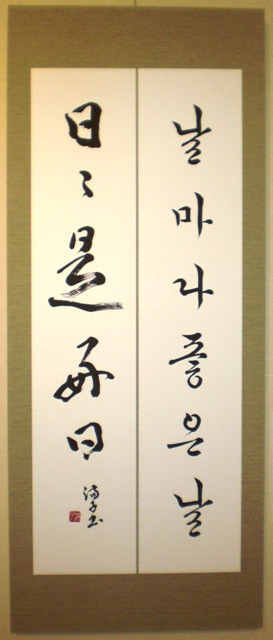 날마다좋은날
日々是好日